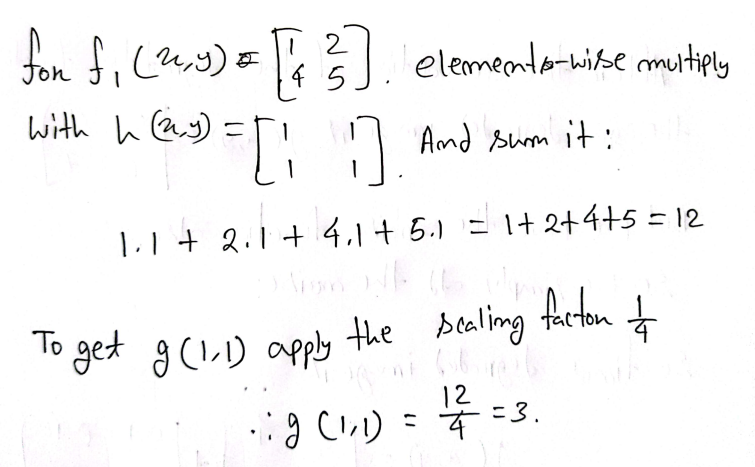 for f₁(x,y) = [1 2
4 5]. elements-wise multiply
with h(x,y) = [1 1
1 1]. And sum it:
1.1 + 2.1 + 4.1 + 5.1 = 1+2+4+5 = 12
To get g(1,1) apply the scaling factor 1/4
∴ g(1,1) = 12/4 = 3.